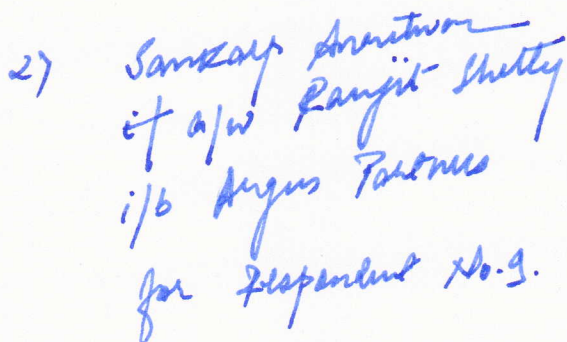 2) Sankalp Anantwar
i/ a/w Ranjit Shetty
i/b Argus Partners
for Respondent No.9.